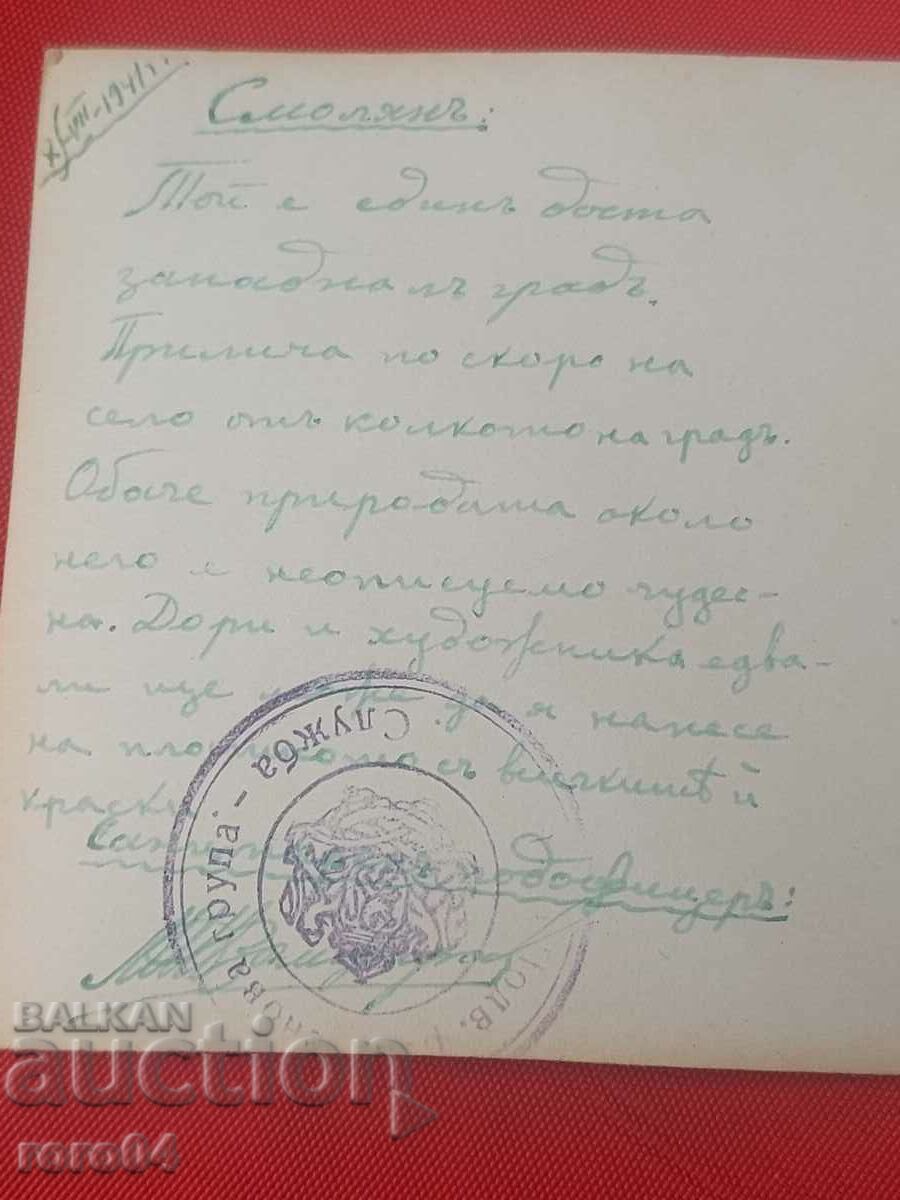 VIII-1941 г.
Смолянъ:
Той е единъ доста
западналъ градъ.
Прилича по скоро на
село отъ колкото на градъ.
Обаче природата около
него е неописуемо чудес-
на. Дори и художника едва-
ли ще може да я нанесе
на платното съ всичкитѣ й
краски
подофицеръ:
група" - Служба
BALKAN
auction
roro04